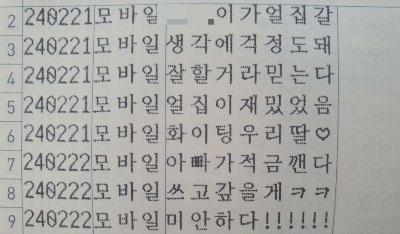 2 240221 모바일 이가얼집갈
3 240221 모바일 생각에걱정도돼
4 240221 모바일 잘할거라믿는다
5 240221 모바일 얼집이재밌었음
6 240221 모바일 화이팅우리딸♡
7 240222 모바일 아빠가적금깬다
8 240222 모바일 쓰고갚을개ㅋㅋ
9 240222 모바일 미안하다!!!!!!